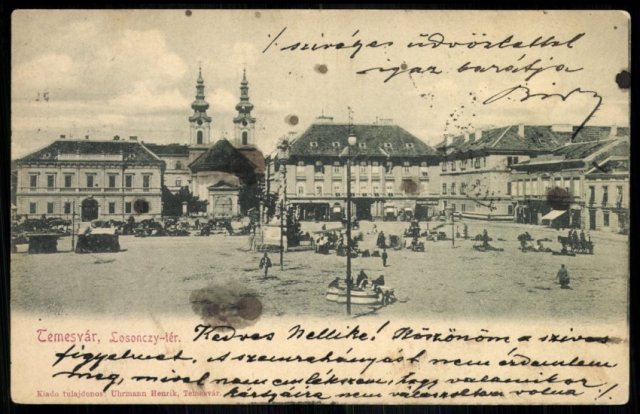 szivéges üdvözlettel
igaz barátja
Temesvár, Losonczy-tér.
Kedves Nellike! Köszönöm a szives
figyelmet, s szemrehányást nem érdemlem
meg, mivel nem emlékszem, hogy valamikor
kártyáira nem válaszoltam volna!
Kiadó tulajdonos: Uhrmann Henrik, Temesvár.